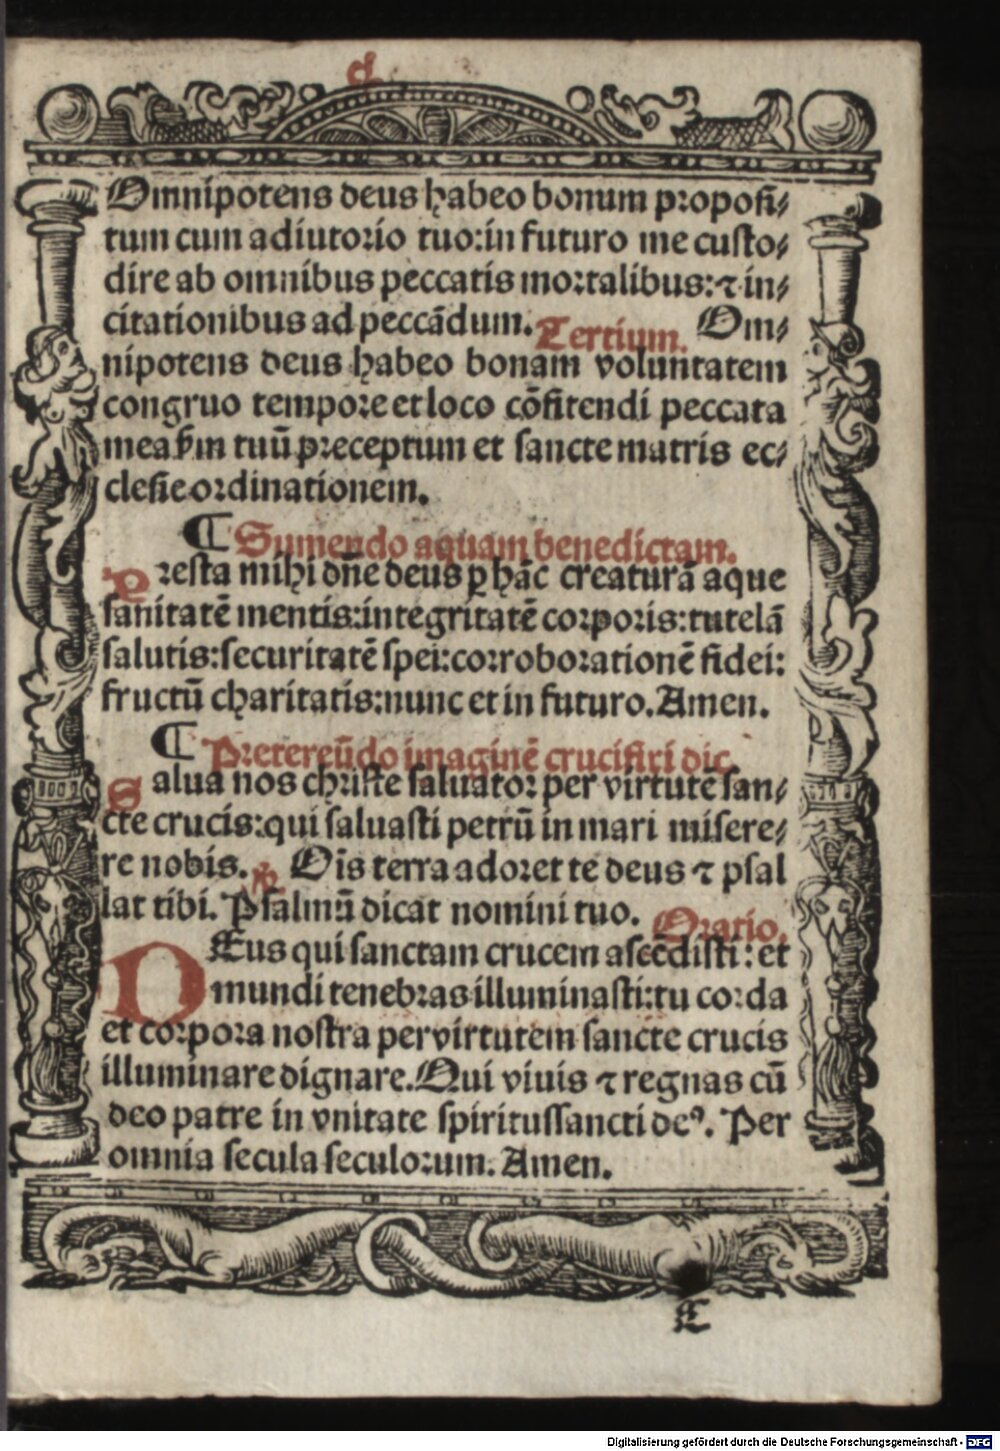 cl
Omnipotens deus habeo bonum proposi⸗
tum cum adiutorio tuo: in futuro me custo⸗
dire ab omnibus peccatis mortalibus: ⁊ in⸗
citationibus ad peccãdum. Tertium. Om⸗
nipotens deus habeo bonam voluntatem
congruo tempore et loco cõfitendi peccata
mea ẜm tuũ preceptum et sancte matris ec⸗
clesie ordinationem.
¶ Sumendo aquam benedictam.
Presta mihi dñe deus ꝑ hãc creaturã aque
sanitatẽ mentis: integritatẽ corporis: tutelã
salutis: securitatẽ spei: corroborationẽ fidei:
fructũ charitatis: nunc et in futuro. Amen.
¶ Pretereũdo imaginẽ crucifixi dic.
Salua nos christe saluator per virtutẽ san⸗
cte crucis: qui saluasti petrũ in mari misere⸗
re nobis. ꝟ Oĩs terra adoret te deus ⁊ psal
lat tibi. Psalmũ dicat nomini tuo. Oratio.
DEus qui sanctam crucem ascẽdisti: et
mundi tenebras illuminasti: tu corda
et corpora nostra per virtutem sancte crucis
illuminare dignare. Qui viuis ⁊ regnas cũ
deo patre in vnitate spiritussancti deꝰ. Per
omnia secula seculorum. Amen.
E
Digitalisierung gefördert durch die Deutsche Forschungsgemeinschaft - DFG